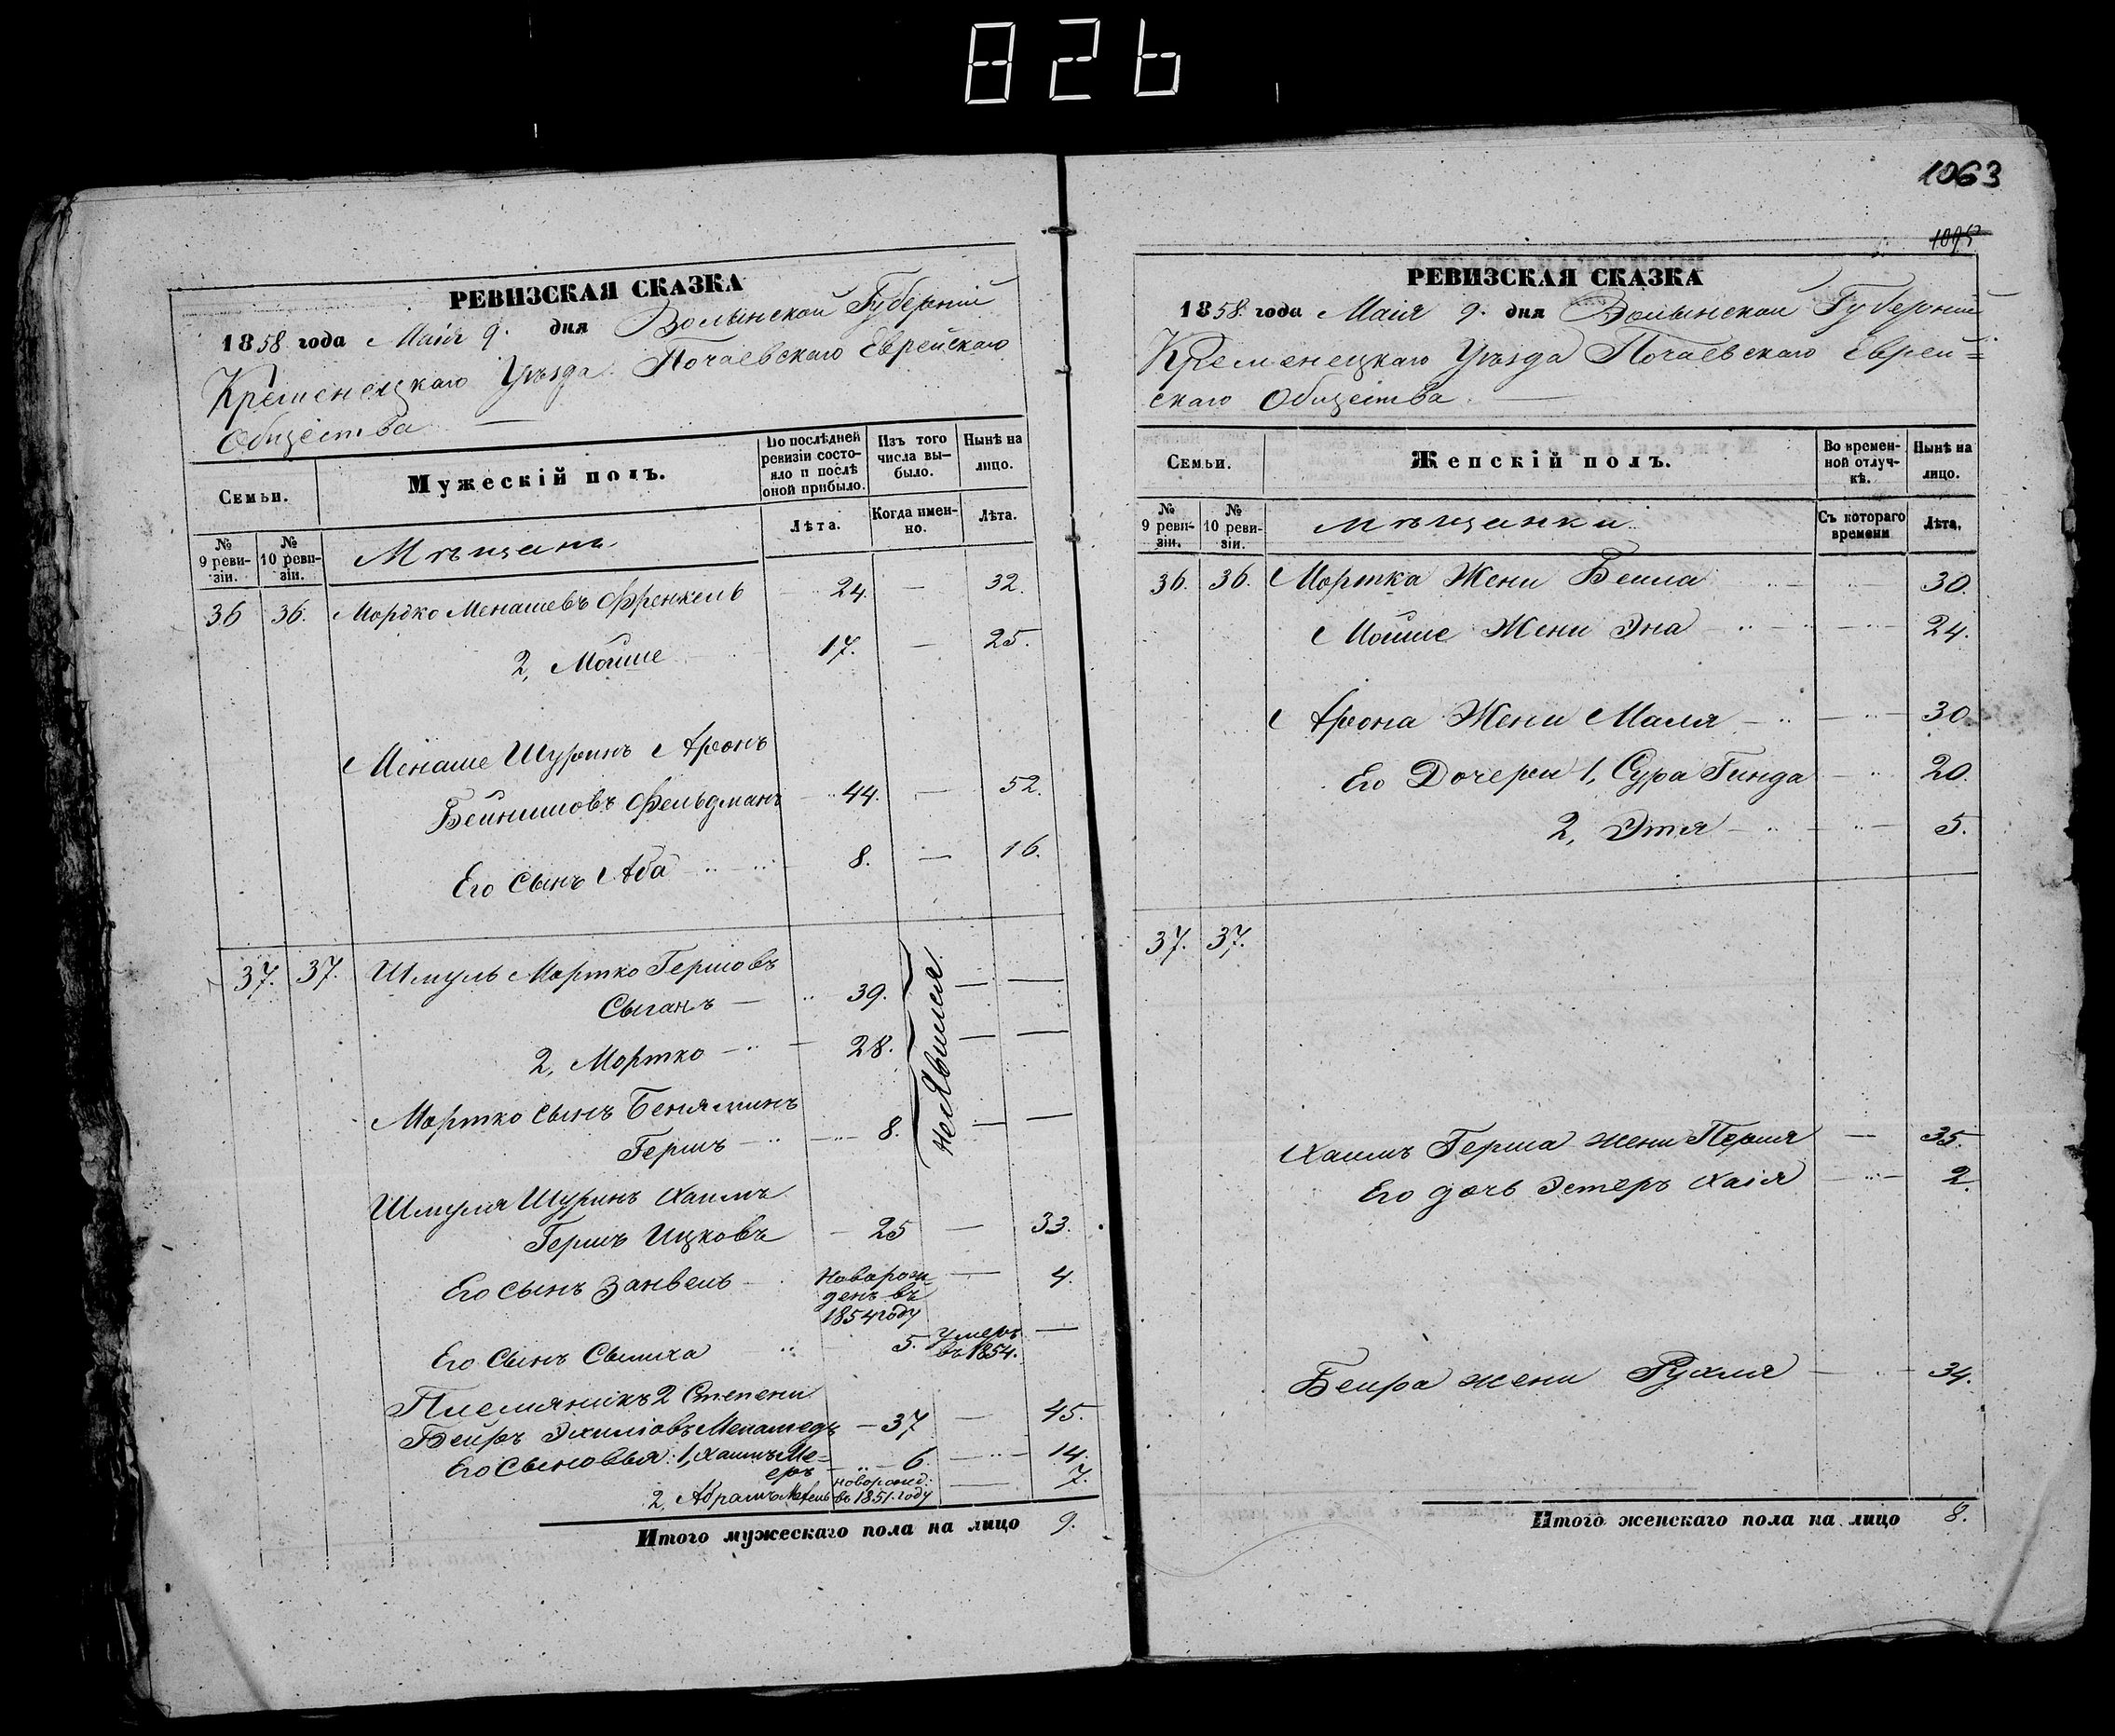 826
РЕВИЗСКАЯ СКАЗКА
1858 года Маія 9. дня Волынской Губерніи
Кременецкаго Уѣзда Почаевскаго Еврейскаго
Общества
Семьи.
Мужескій полъ.
Во послѣдней ревизіи состояло и послѣ оной прибыло.
Изъ того числа выбыло.
Нынѣ на лицо.
№ 9 ревизіи.
№ 10 ревизіи.
Мѣщанъ
Лѣта.
Когда именно.
Лѣта.
36 36. Мордко Менашевъ Френкель 24. — 32.
2, Мойше 17. — 25.
Менаше Шуринъ Аронъ
Бейнишовъ Фельдманъ 44. — 52.
Его Сынъ Аба 8. — 16.
37. 37. Шмуль Мортко Гершовъ
Сыганъ — 39. — —
2, Мортко — 28. — —
неявился
Мортко сынъ Беняминъ
Гершъ — 8. — —
Шмуля Шуринъ Хаимъ
Гершъ Ицковъ — 25 — 33.
Его сынъ Занвель — Новорожденъ въ 1854 году — 4.
Его Сынъ 5. умеръ въ 1854. —
Племяникъ 2 Степени
Бейръ — 37 — 45.
Его Сыновья: 1, Хаимъ Ме=
еръ — 6. — 14.
2, Абрамъ новорожд: въ 1851. году — 7.
Итого мужескаго пола на лицо 9.
1063
1095
РЕВИЗСКАЯ СКАЗКА
1858. года Маія 9. дня Волынской Губерніи
Кременецкаго Уѣзда Почаевскаго Еврей=
скаго Общества
Семьи.
Женскій полъ.
Во временной отлучкѣ.
Нынѣ на лицо.
№ 9 ревизіи.
№ 10 ревизіи.
мѣщанки
Съ котораго времени
Лѣта.
36. 36. Мортка Жена Бейла — 30.
Мойше Жена Эна — 24.
Арона Жена Маля — 30
Его Дочери 1, Сура Гинда — 20.
2, Этя — 5.
37. 37.
Хаимъ Герша жена Перля — 35.
Его дочь Эстеръ Хаія — 2.
Беира жена Рухля — 34.
Итого женскаго пола на лицо 8.